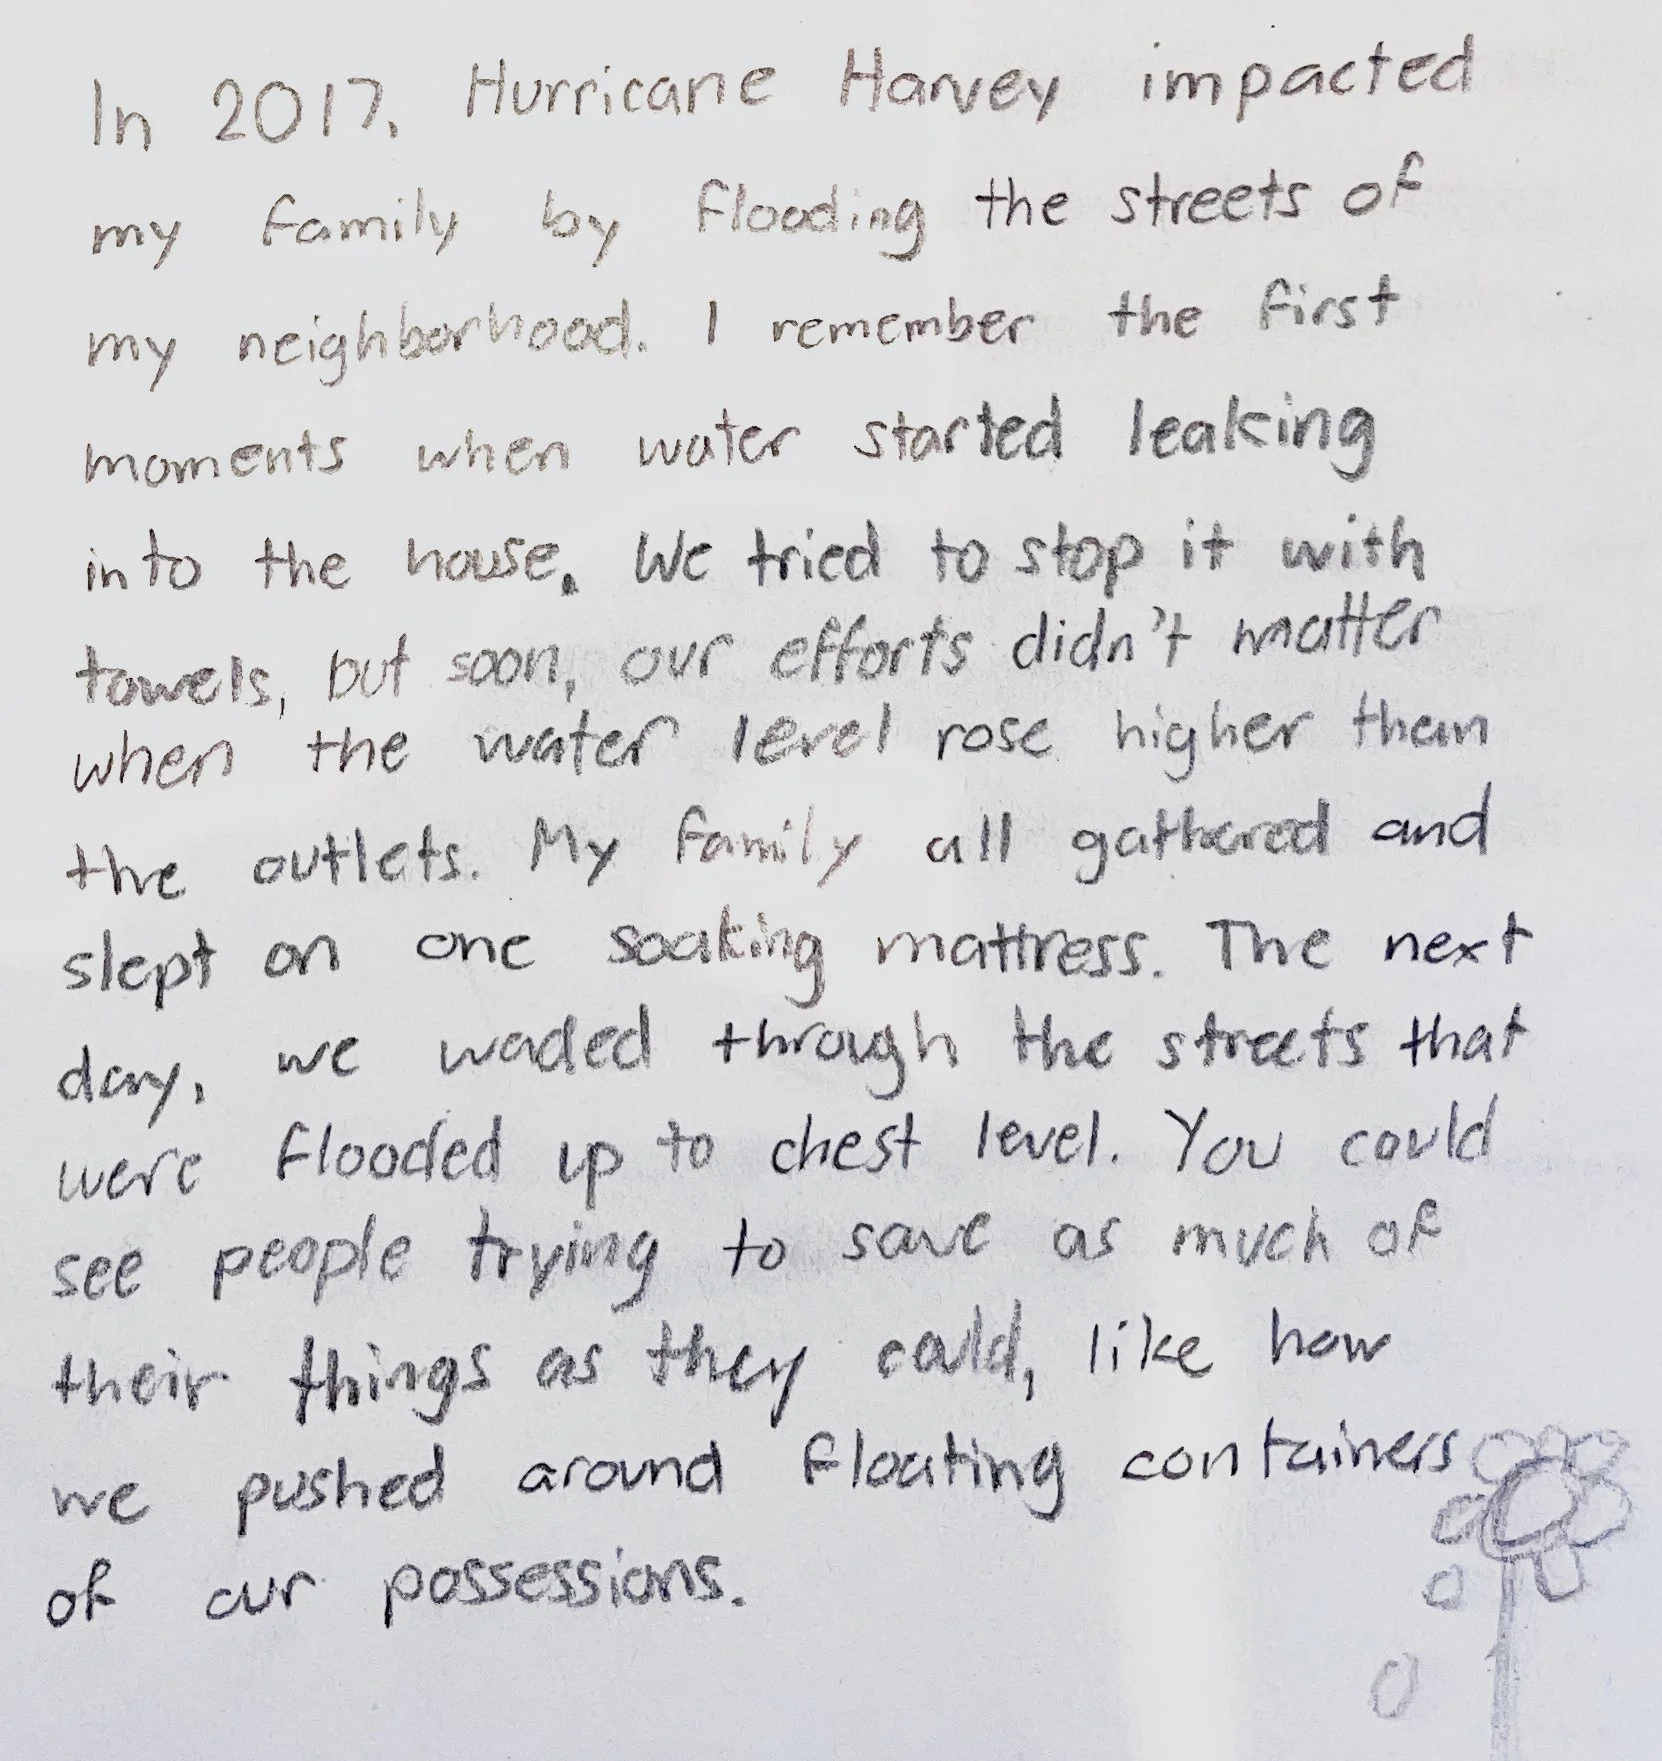 In 2017, Hurricane Harvey impacted
my family by flooding the streets of
my neighborhood. I remember the first
moments when water started leaking
into the house. We tried to stop it with
towels, but soon, our efforts didn't matter
when the water level rose higher than
the outlets. My family all gathered and
slept on one soaking mattress. The next
day, we waded through the streets that
were flooded up to chest level. You could
see people trying to save as much of
their things as they could, like how
we pushed around floating containers
of our possessions.